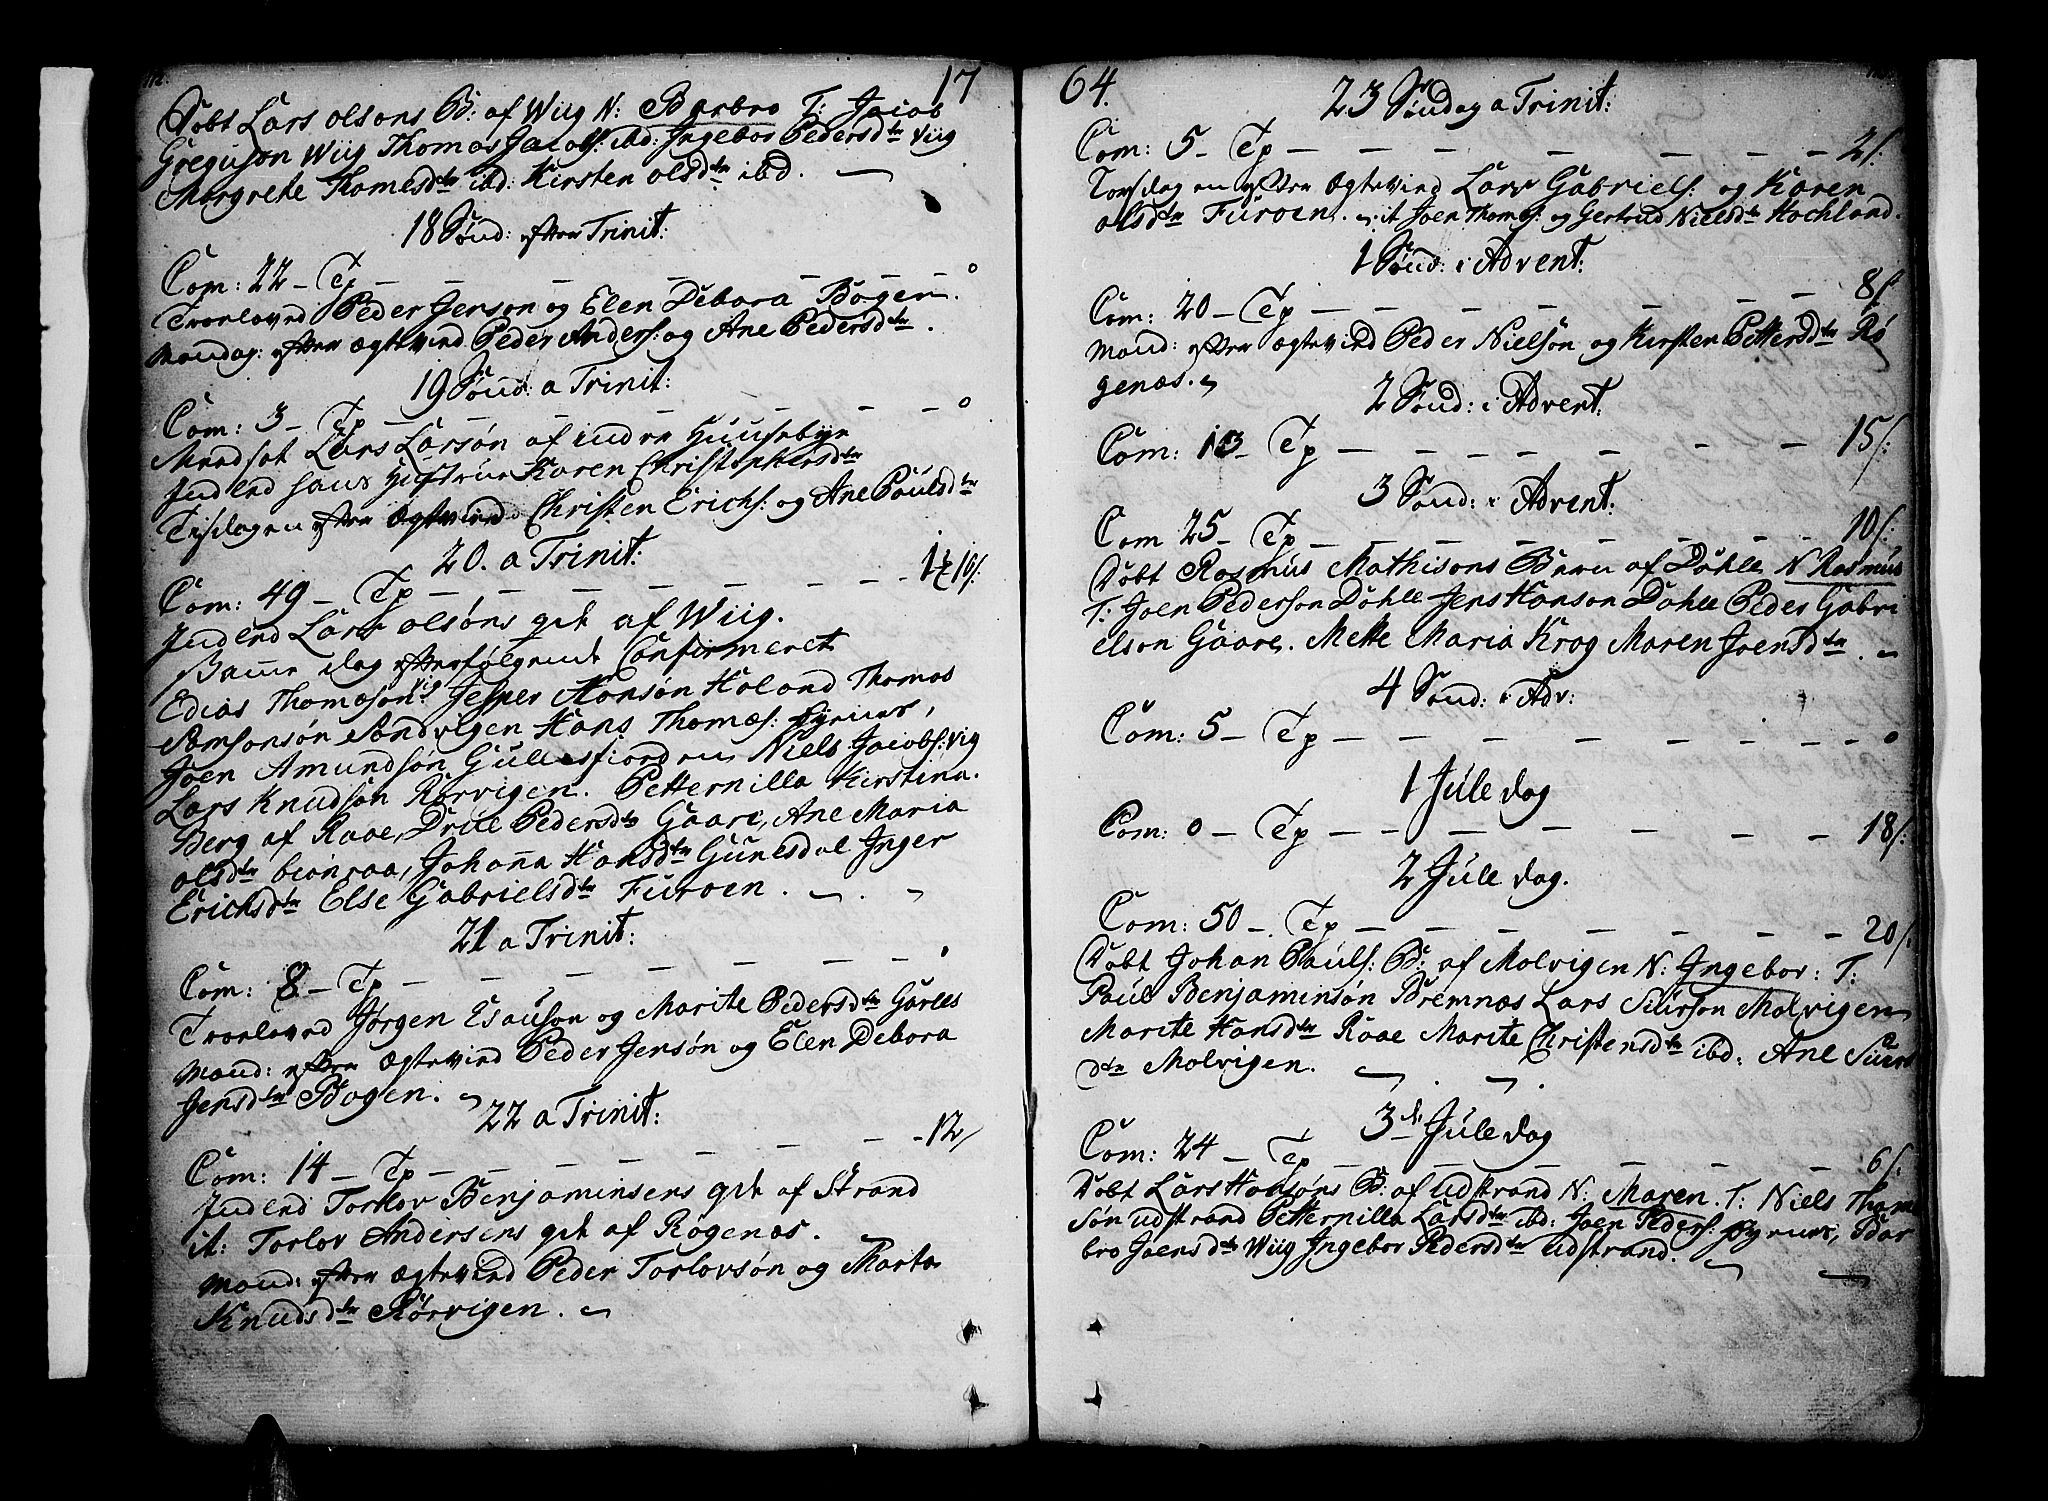 17
Døbt Lars olsøns B: af Wiig N: Barbro T: Jacob
Greguson Wiig Thomas Jacobs: ibd: Ingebor Pedersdtr Viig
Margrete Thomesdtr ibd: Kirsten olsdtr ibd.
18 Sønd: efter Trinit:
Com: 22 – Tp – – – – – – – 0
Troloved Peder Jenson og Elen Debora Bogen.
Mandag: efter ægtevied Peder Anders: og Ane Pedersdtr.
19 Sønd: a Trinit:
Com: 3 – Tp – – – – – – – 0
Maadsat Lars Larsøn af indre Huusebye
Indled hans Hustrue Karen Christophersdtr
Tisdagen efter ægtevied Christen Erichs: og Ane Paulsdtr
20. a Trinit:
Com: 49 – Tp – – – – – – – 16/:
Indled Lars olsøns qde af Wiig.
Samme dag efterfølgende Confirmeret
Edias Thomæson vig Jesper Hansøn Holand Thomas
Samsonsøn Sandvigen Hans Thomæs:
Joen Amundsøn Gullesfiorden Niels Jacobs: Vig
Lars Knudsøn Rørvigen. Petternilla Kirstina
Berg af Raae, Drue Pedersdtr Gaare, Ane Maria
olsdtr biønraa, Johanna Hansdtr Gunesdal Inger
Erichsdtr Else Gabrielsdtr Furoen.
21 a Trinit:
Com: 8 – Tp – – – – – – –
Troloved Jørgen Esauson og Marite Pedersdtr Garles
Mand: efter ægtevied Peder Jensøn og Elen Debora
Jensdtr Bogen.
22 a Trinit:
Com: 14 – Tp – – – – – – – 12/
Indled Torlov Benjaminsens qde af Strand
it: Torlov Andersens qde af Røgenæs.
Mand: efter ægtevied Peder Torlovsøn og Marta
Knudsdtr Rørvigen.
64.
23 Søndag a Trinit:
Com: 5 – Tp – – – – – – – 21/:
Torsdagen efter ægtevied Lars Gabriels: og Karen
olsdtr Furoen. it Joen Thomes: og Gertrud Nielsdtr Hochland.
1 Sønd: i Advent:
Com: 20 – Tp – – – – – – – 8/:
Mand: efter ægtevied Peder Nielsøn og Kirsten Pettersdtr Rø
genæs.
2 Sønd: i Advent:
Com: 13 Tp – – – – – – – 15/:
3 Sønd: i Advent:
Com 25 – Tp – – – – – – – 10/:
Døbt Rasmus Mathisons Barn af Dahle N Rasmus
T: Joen Pederson Dahle Jens Hanson Dahle Peder Gabri
elson Gaare. Mette Maria Krog Maren Joensdtr.
4 Sønd: i Adv:
Com: 5 – Tp – – – – – – – 0
1 Jule dag
Com: 0 – Tp – – – – – – – 18/:
2 Jule dag.
Com: 50 – Tp – – – – – – – 20/:
Døbt Johan Pauls: B: af Molvigen N: Ingebor: T:
Paul Benjaminsøn Bremnæs Lars Siurson Molvigen
Marite Hansdtr Raae Marite Christensdtr ibd: Ane Siurs
dtr Molvigen.
3de Jule dag
Com: 24 – Tp – – – – – – – 6/:
Døbt Lars Hansøns B: af udstrand N: Maren. T: Niels Thom
søn udstrand Petternilla Larsdtr ibd: Joen Peders: Bar
bro Joensdtr Wiig Ingebor Pedersdtr udstrand.